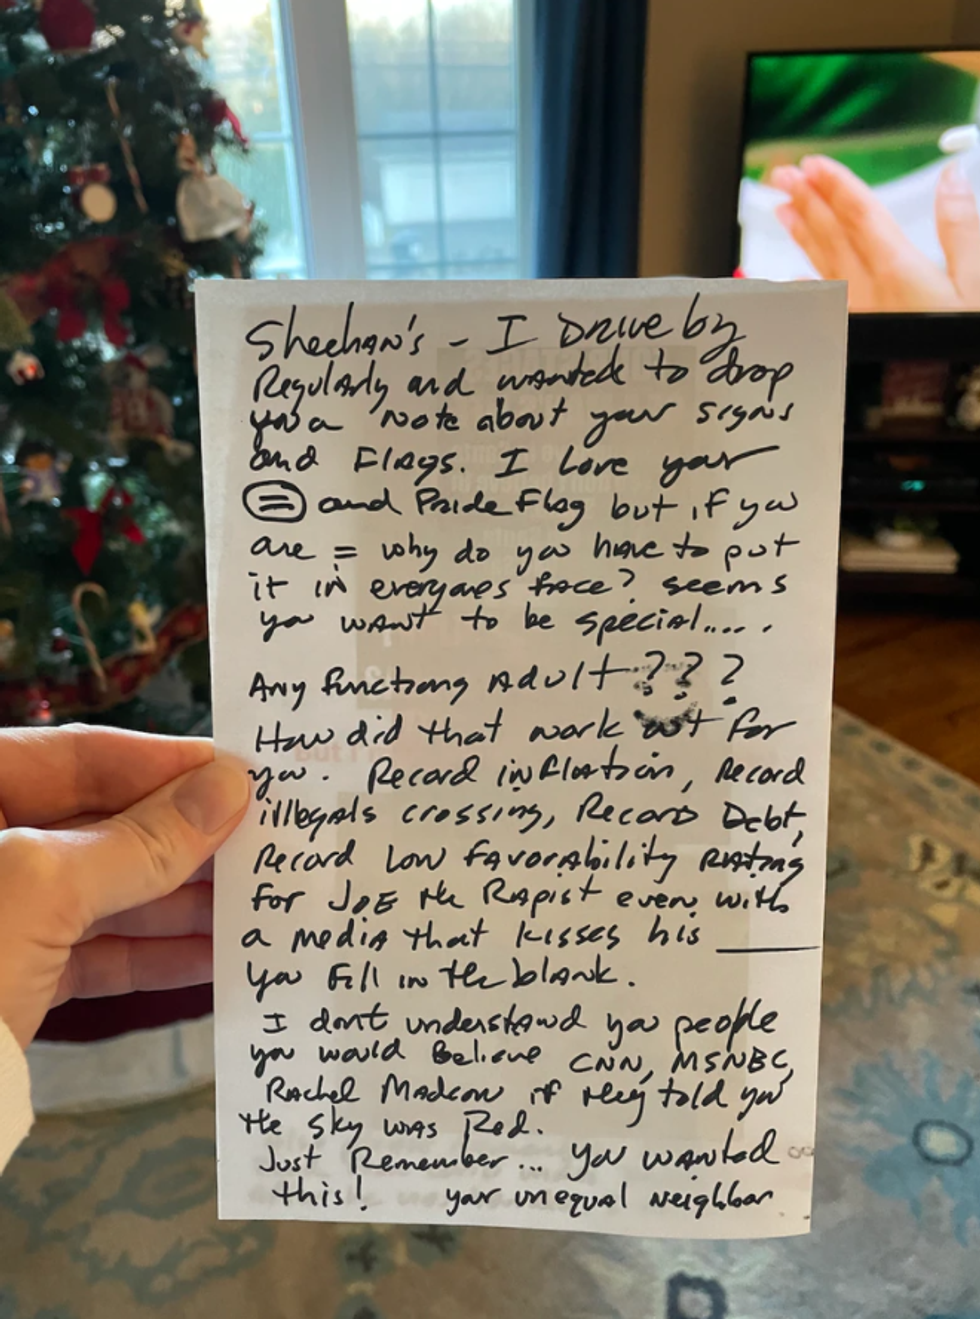 Sheehan's - I Drive by
Regularly and wanted to drop
you a note about your signs
and Flags. I Love your
= and Pride Flag but if you
are = why do you have to put
it in everyones face? seems
you want to be special.....
Any functiong Adult ? ? ?
How did that work out for
you. Record inflation, Record
illegals crossing, Record Debt,
Record Low favorability Rating
for JOE the Rapist even with
a media that kisses his ______
you fill in the blank.
I dont understand you people
you would Believe CNN, MSNBC,
Rachel Madcow if they told you
the sky was Red.
Just Remember... you wanted
this! your unequal neighbor